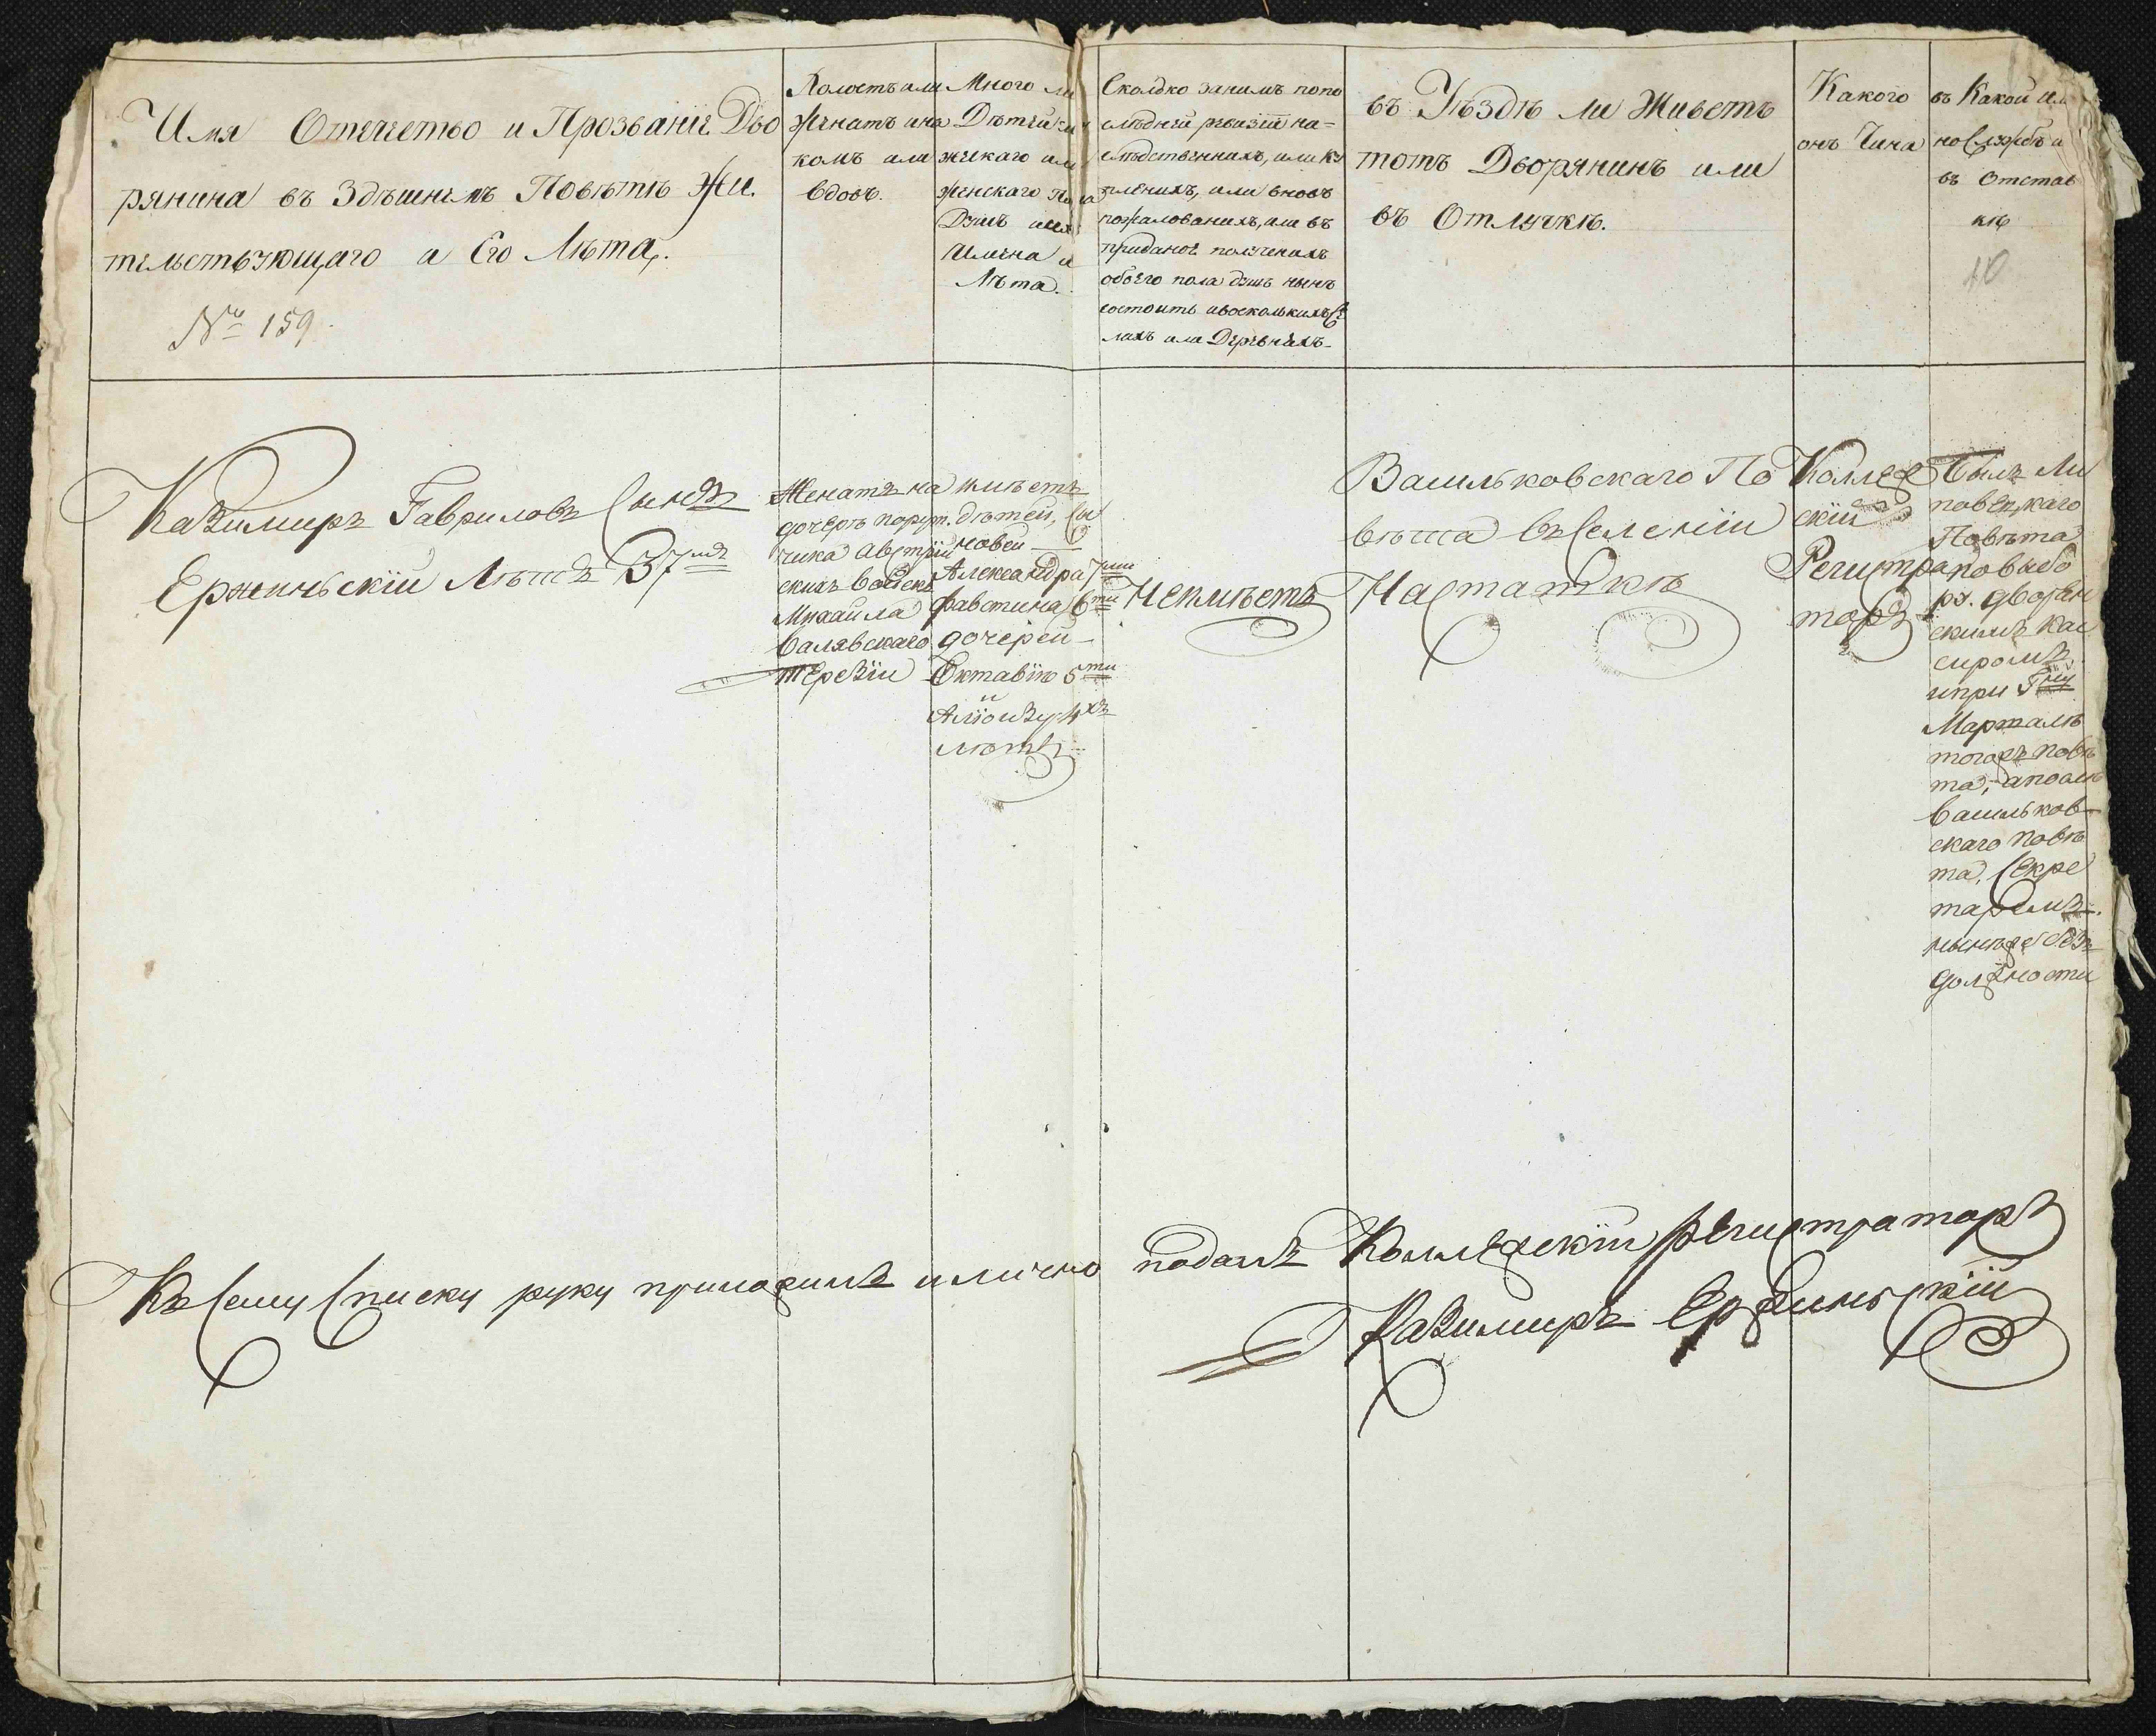 Имя Отечетьво и Прозвание Дво
рянина въ Здѣшнемъ Повѣтѣ Жи.
тельствующаго и Его Лѣта.
№ 159.
Холостъ или
Женатъ и на
комъ или
вдовъ.
Много ли
Дѣтей
жескаго или
женскаго По
Душъ
Имена и
Лѣта.
Сколько занимъ попо
слѣдней ревизiи на=
слѣдственныхъ, или ку
пленихъ, или вновь
пожалованихъ, или въ
приданое полученихъ
обоего пола душъ нынѣ
состоитъ и воскольких Се
лахъ или Деревняхъ-
въ Уѣздѣ ли Живетъ
тотъ Дворянинъ или
въ Отлучкѣ.
Какого
онъ Чина
въ Какой им
но Службѣ и
въ Отстав
кѣ
10
Казимиръ Гавриловъ Сынъ
Ержиньскiй Лѣтъ 37мъ
Женатъ на
дочерѣ поруч.
чика Австрiй
скихъ войскъ
Михаила
Валявскаго
Терезiи
имѣетъ
дѣтей, Сы
новей
Александра 7ми
Фавстина 6ти
дочерей
Октавiю 5ти
и
Алiоизу 4хъ
лѣтъ
Неимѣетъ
Васильковскаго По
вѣта въ Селенiи
Насташкѣ
Коллеж
скiй
Регистра
торъ
былъ Ли
повецкаго
Повѣта
по выбо
ру. дворян
скимъ Кас
сиромъ
и при
Маршалѣ
тогожъ повѣ
та, а после
Васильков
скаго повѣ
та, Секре
таремъ.
нынеже безъ
должности
Къ Сему Списку руку приложилъ и лично подалъ Коллежскiй Регистраторъ
Казимиръ Ержиньскiй